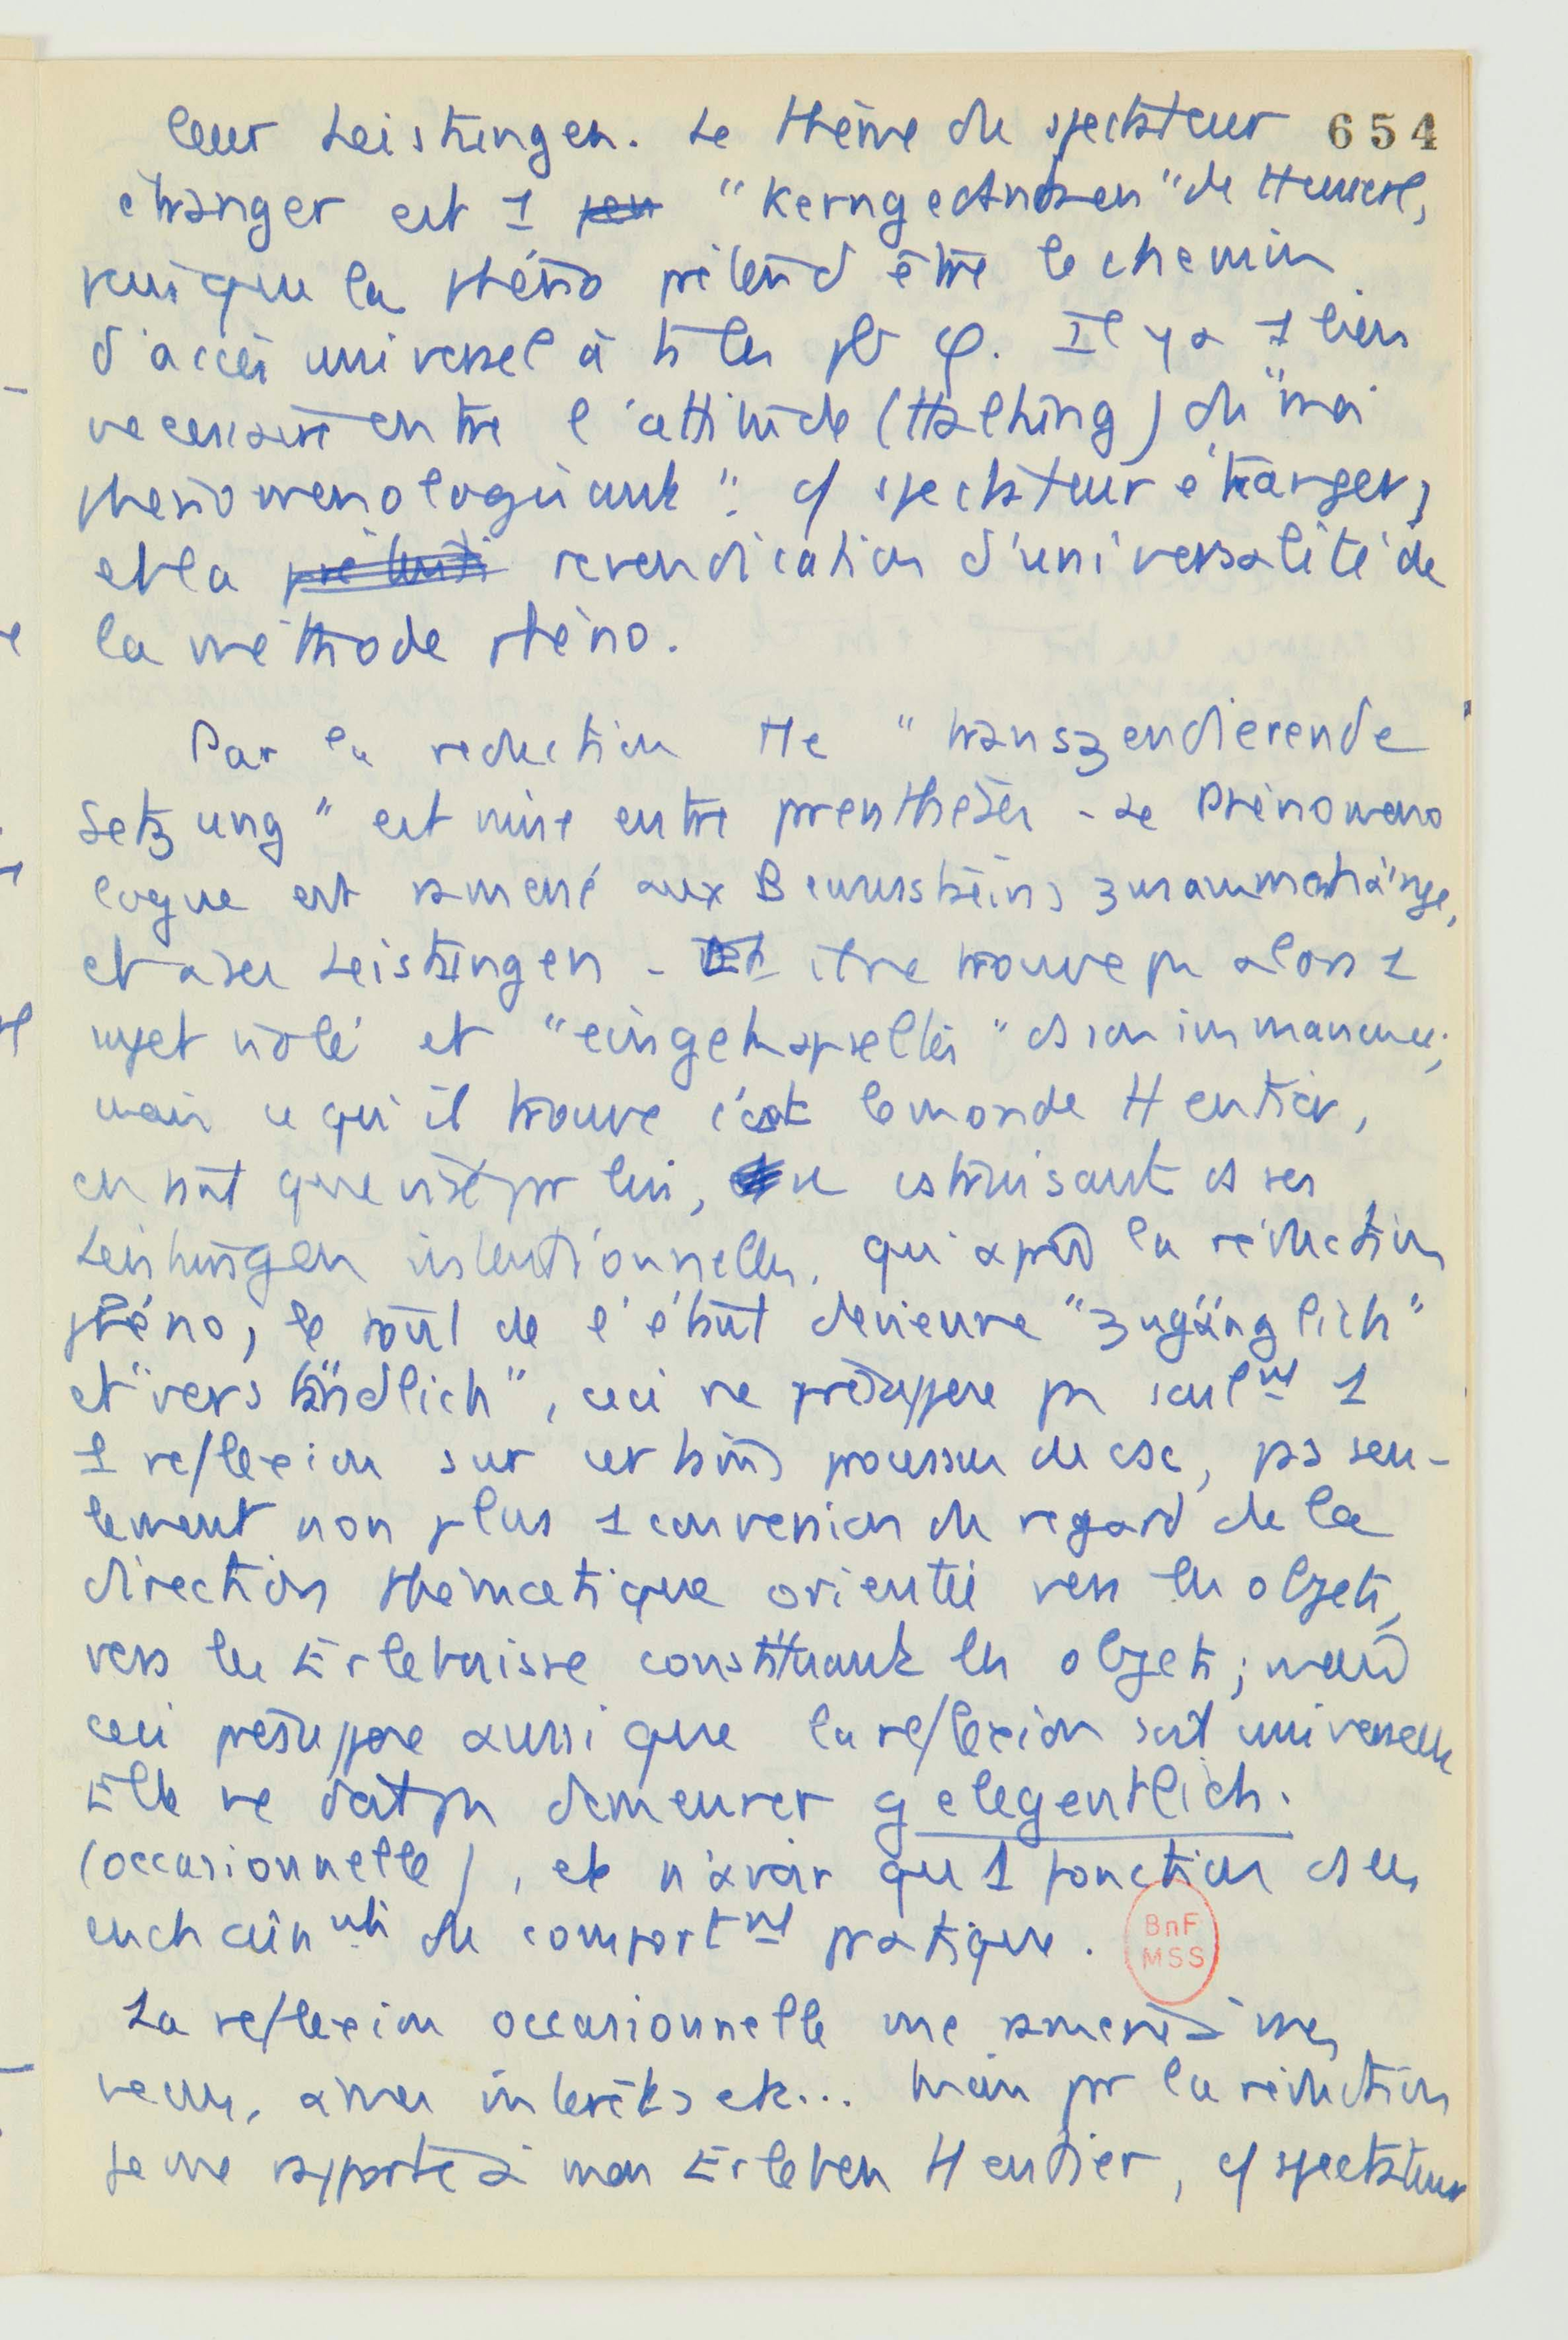 leur Leistungen. Le thème du spectateur 654
étranger est 1 pen "Kerngedanken" de Husserl,
puisque la phéno prétend être le chemin
d'accès universel à ts les pb φ. Il y a 1 lien
necessaire entre l'attitude (Haltung) du "moi
phenomenologisant" cf spectateur étranger,
et la préten revendication d'universalité de
la méthode phéno.
Par la reduction tte "transzendierende
Setzung" est mise entre prenthèses - Le Phénoméno
logue est ramené aux Bewusstseins zusammenhänge,
et à ses Leistungen - il ne trouve pas alors 1
sujet isolé et "eingekapselltes" ds son immanence;
mais ce qu'il trouve c'est le monde tt entier,
en tant que visé par lui, se cstruisant ds ses
Leistungen intentionnelles. qu'après la réduction
phéno, le tout de l'étant devienne "zugänglich"
et "verständlich", ceci ne présuppose pas seulnt 1
1 reflexion sur certains processus de csc, pas seu-
lement non plus 1 conversion du regard de la
direction thématique orientée vers les objets,
vers les Erlebnisse constituants les objets; mais
ceci présuppose aussi que la reflexion soit universelle
Elle ne doit pas demeurer gelegentlich.
(occasionnelle), et n'avoir qu'1 fonction ds les
enchaînnts du comportnt pratique.
BnF
MSS
La reflexion occasionnelle me ramene à mes
vecus, à mes intérêts etc... mais par la réduction
je me rapporte à mon Erleben tt entier, cf spectateur